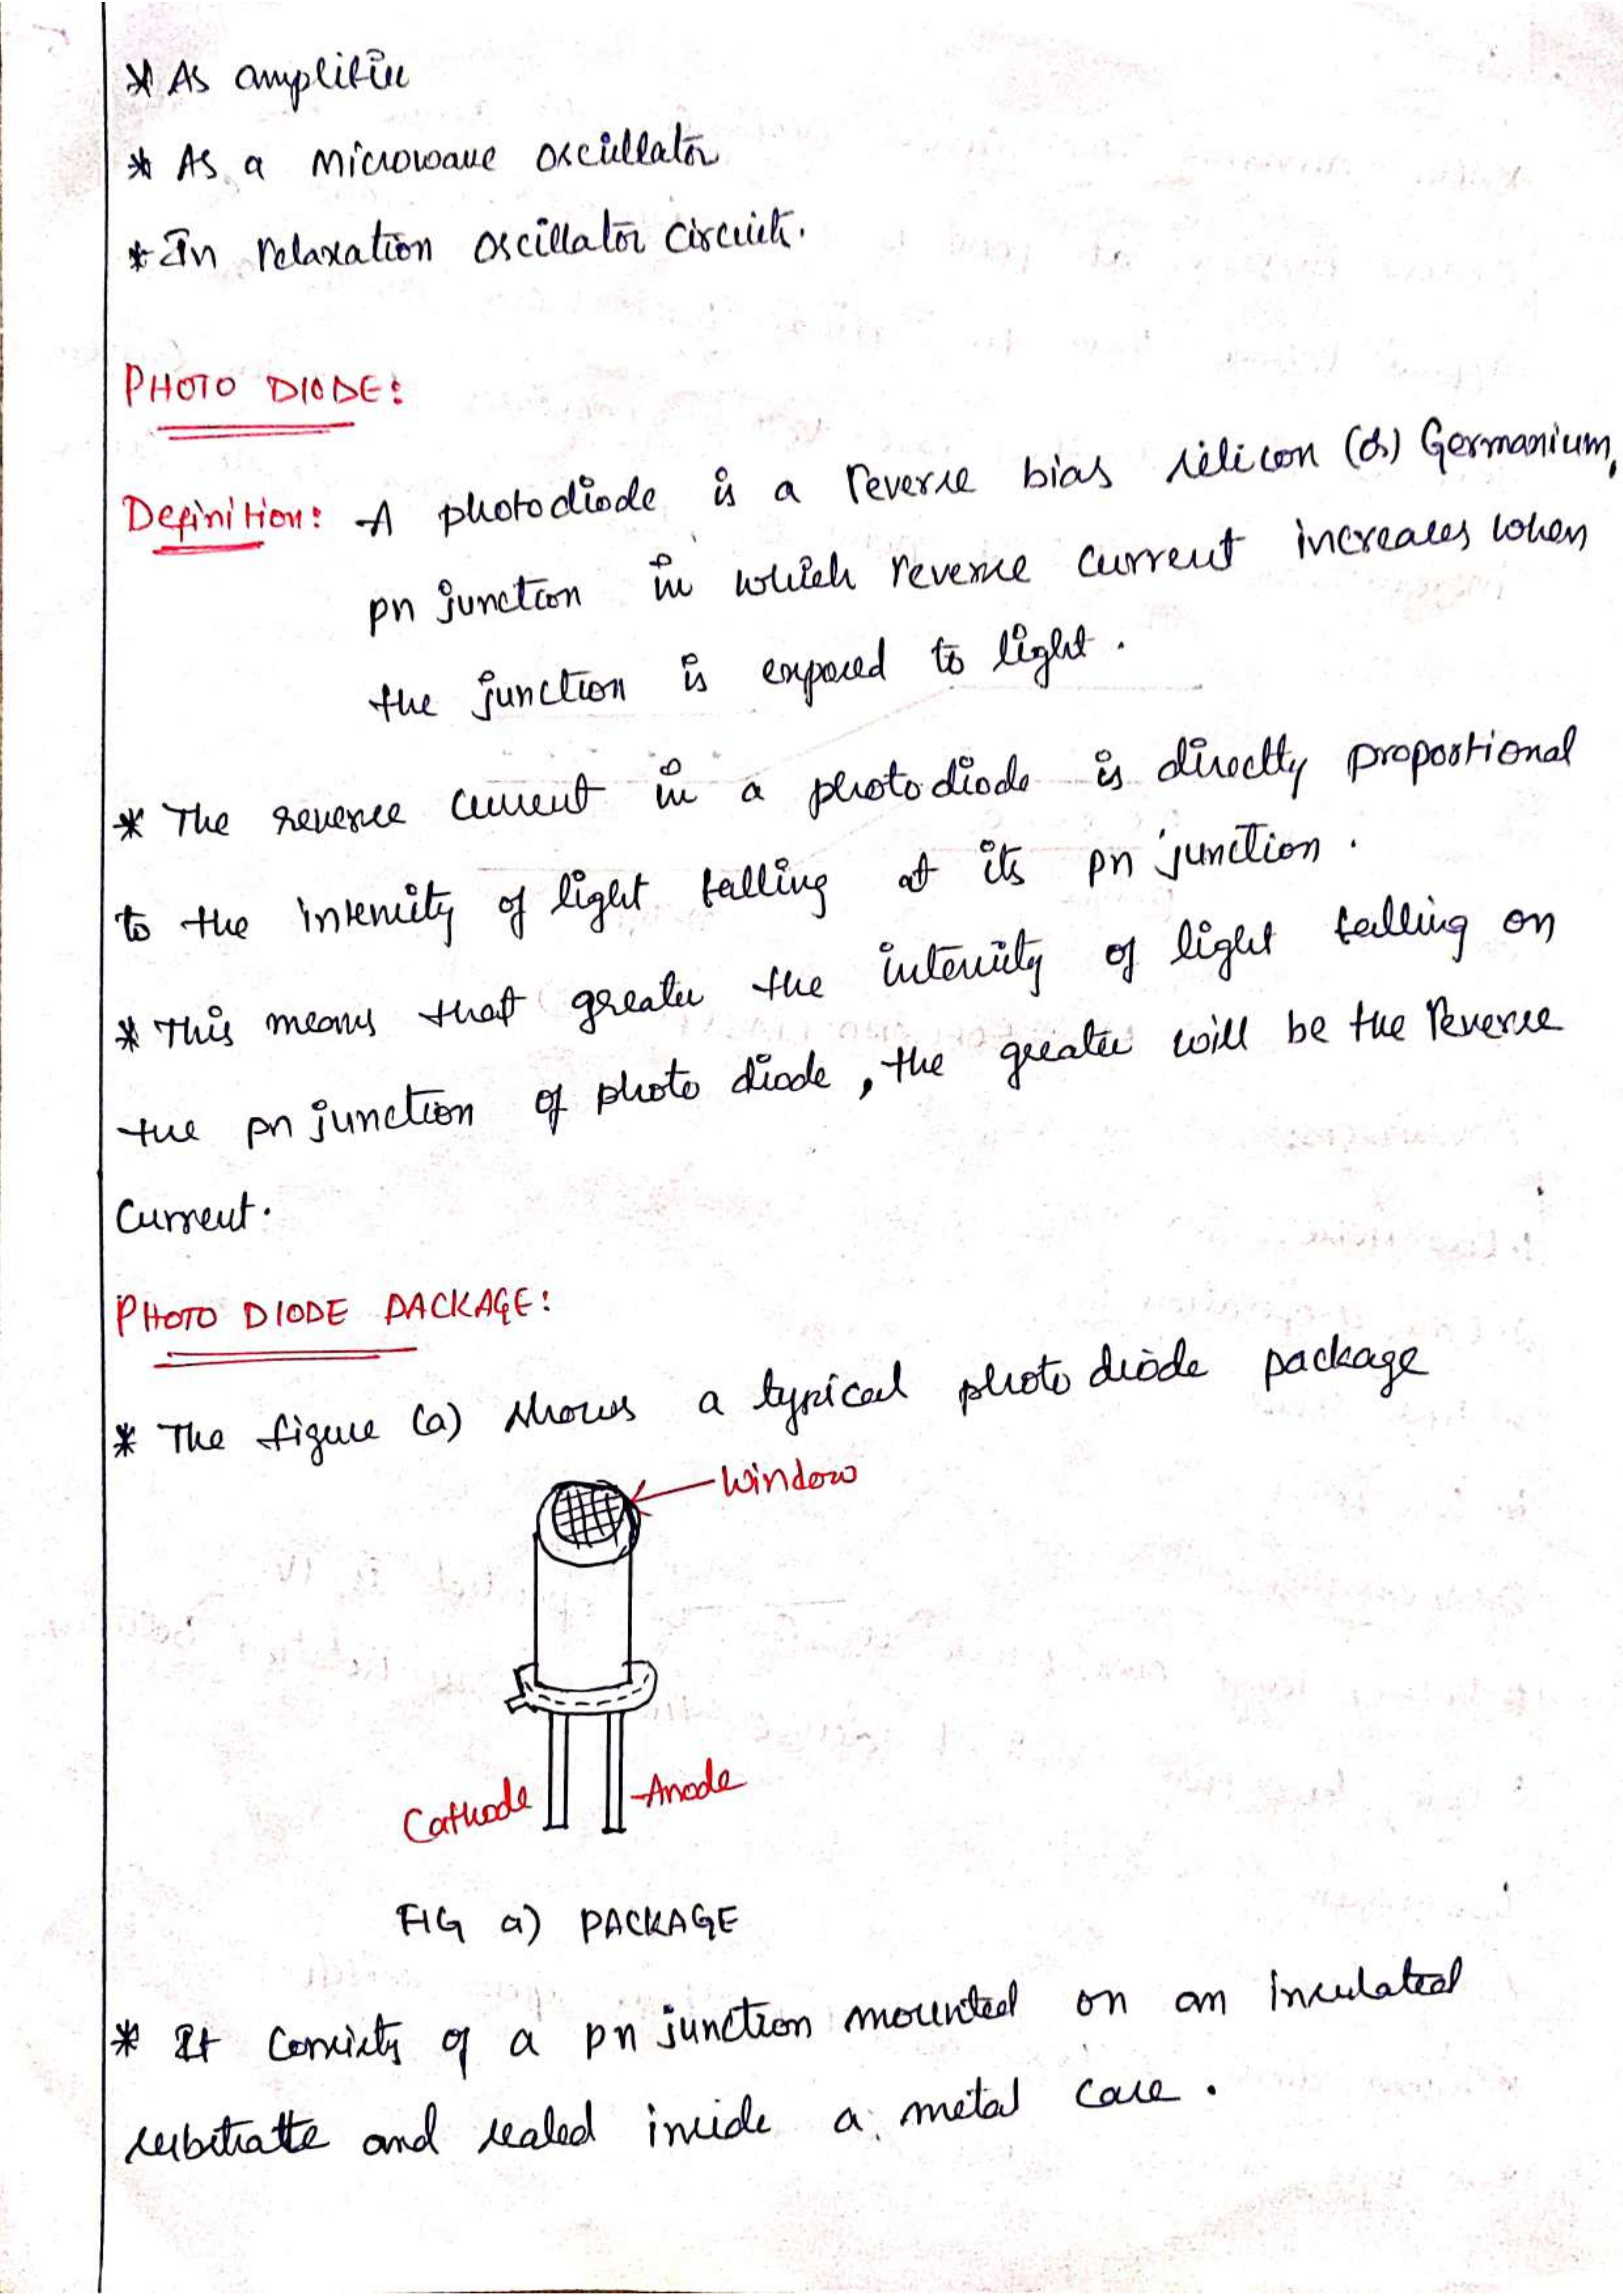 * As amplifier
* As a Microwave oscillator
* In relaxation oscillator circuit.
PHOTO DIODE:
Definition: A photodiode is a reverse bias silicon (or) Germanium,
pn junction in which reverse current increases when
the junction is exposed to light.
* The reverse current in a photodiode is directly proportional
to the intensity of light falling at its pn junction.
* This means that greater the intensity of light falling on
the pn junction of photo diode, the greater will be the Reverse
Current.
PHOTO DIODE PACKAGE:
* The figure (a) shows a typical photo diode package
Window
Cathode
Anode
FIG a) PACKAGE
* It consists of a pn junction mounted on an insulated
substratte and sealed inside a metal case.